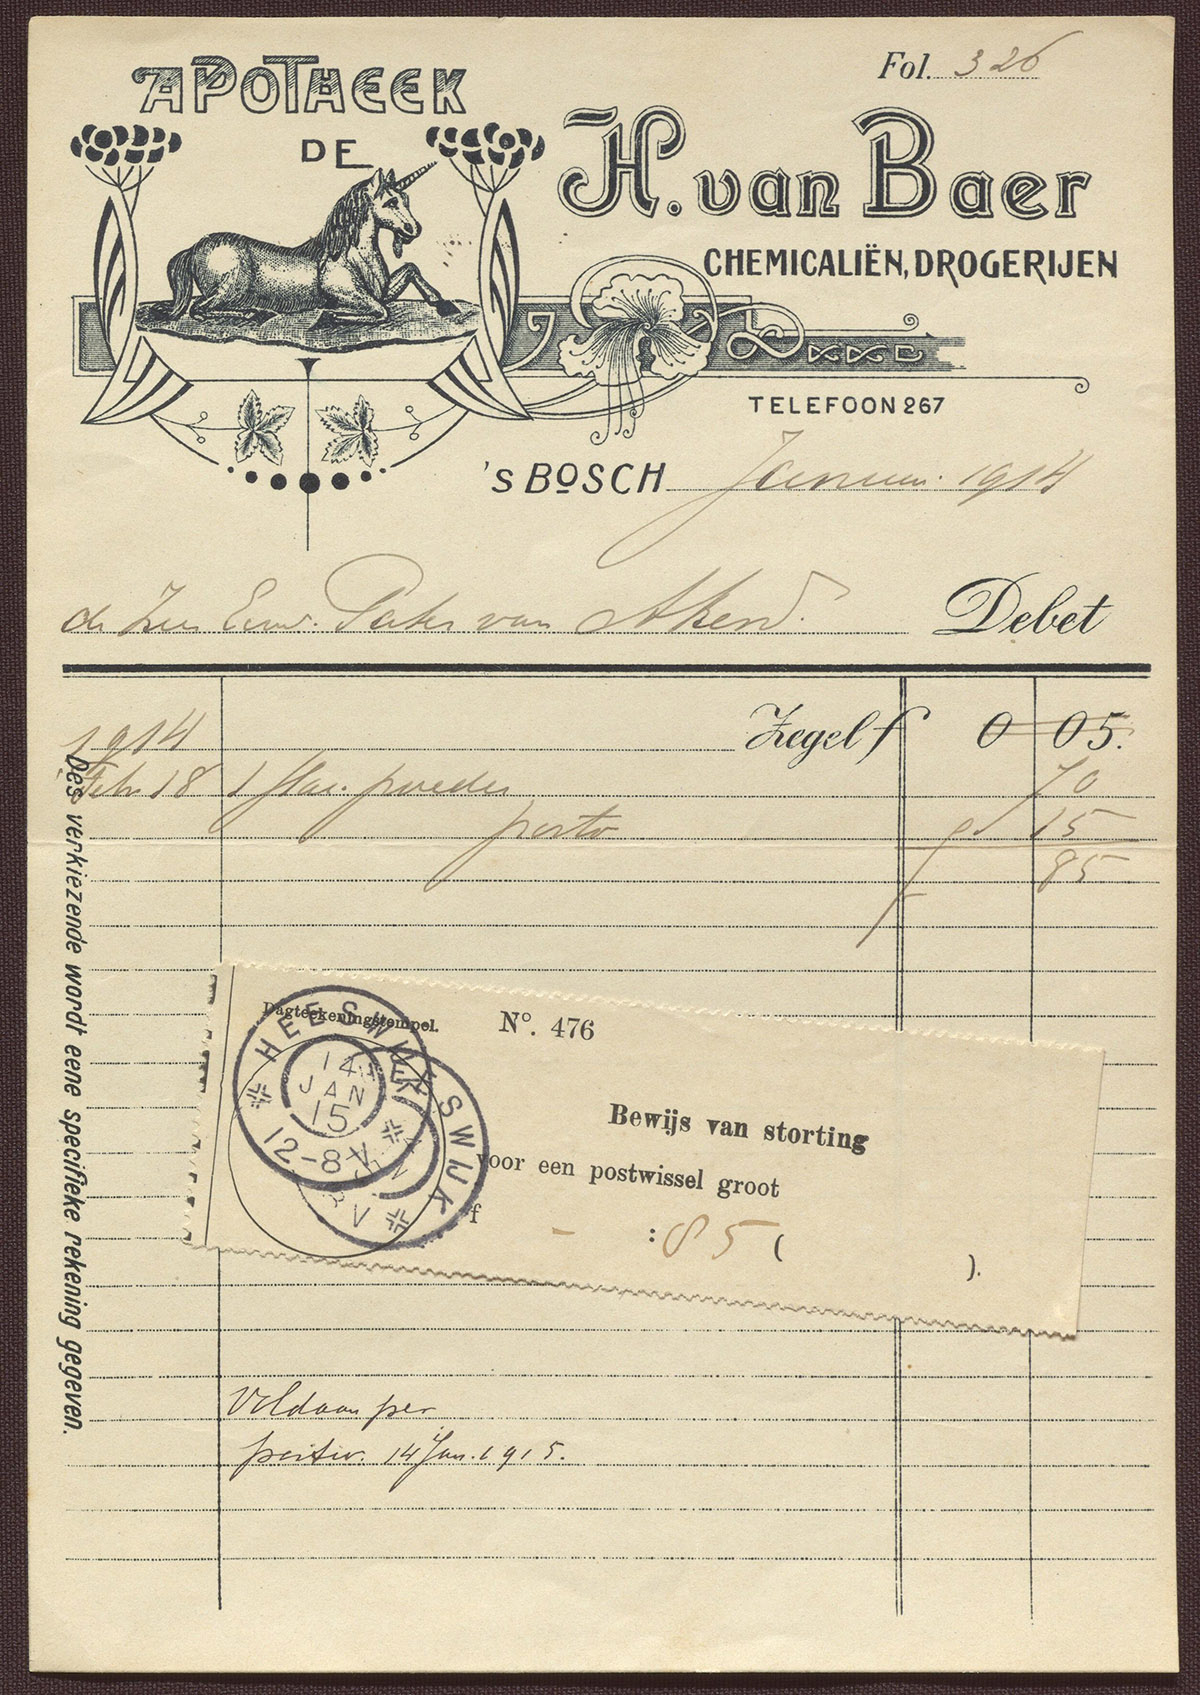 Fol. 326
APOTHEEK
DE
H. van Baer
CHEMICALIËN, DROGERIJEN
TELEFOON 267
'S BOSCH Januari 1914
de Zeer Eerw. Pater van Debet
Zegel f 0 05.
1914
Febr. 18 1 poeder 70
porto 15
f 85
Des verkiezende wordt eene specifieke rekening gegeven.
Dagteekeningstempel.
No. 476
HEESWIJK
14 JAN 15
12-8V
HEESWIJK
Bewijs van storting
voor een postwissel groot
f - : 85 ( ).
Voldaan per
postw. 14 Jan. 1915.